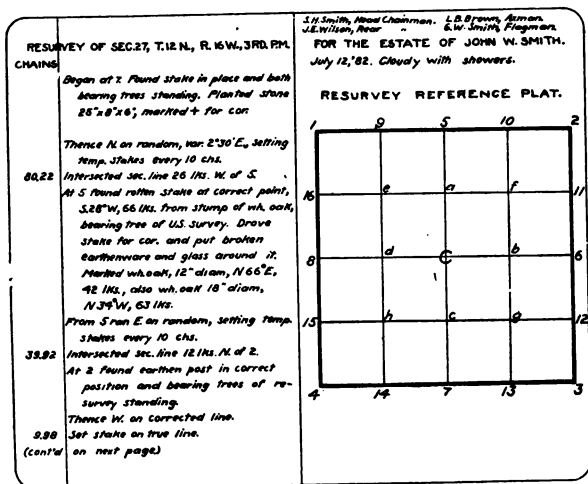 RESURVEY OF SEC.27, T.12 N., R. 16 W., 3RD. P.M.
CHAINS
Began at 7. Found stake in place and both
bearing trees standing. Planted stone
25"x8"x6", marked + for cor.
Thence N. on random, var. 2°30'E., setting
temp. stakes every 10 chs.
80.22 Intersected sec. line 26 lks. W. of 5.
At 5 found rotten stake at correct point,
S.28°W, 66 lks. from stump of wh. oak,
bearing tree of U.S. survey. Drove
stake for cor. and put broken
earthenware and glass around it.
Marked wh. oak, 12" diam, N 66°E,
42 lks., also wh. oak 18" diam,
N 34°W, 63 lks.
From 5 ran E. on random, setting temp.
stakes every 10 chs.
39.92 Intersected sec. line 12 lks. N. of 2.
At 2 found earthen post in correct
position and bearing trees of re-
survey standing.
Thence W. on corrected line.
9.98 Set stake on true line.
(cont'd on next page)
S.H. Smith, Head Chainman. L.B. Brown, Axman.
J.E. Wilson, Rear " G.W. Smith, Flagman.
FOR THE ESTATE OF JOHN W. SMITH.
July 12,'82. Cloudy with showers.
RESURVEY REFERENCE PLAT.
1 9 5 10 2
16 e a f 11
8 d C b 6
15 h c g 12
4 14 7 13 3